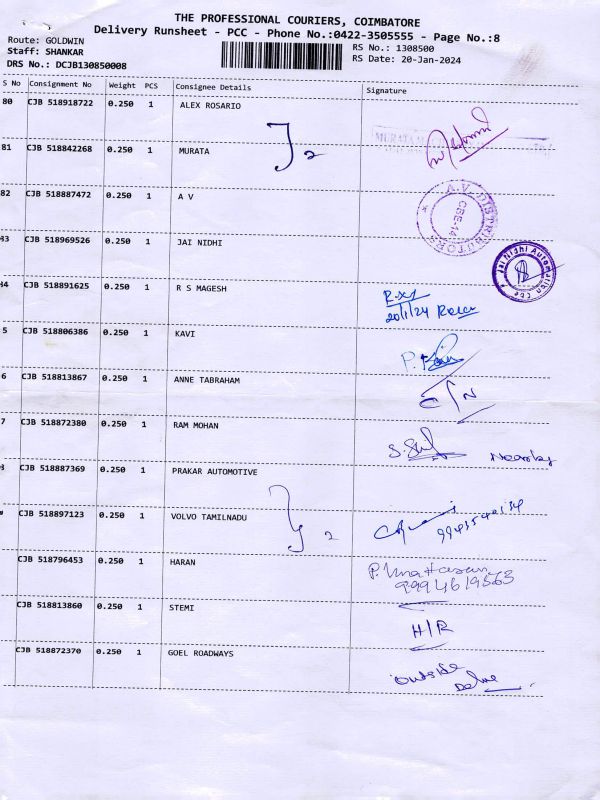 THE PROFESSIONAL COURIERS, COIMBATORE
Delivery Runsheet - PCC - Phone No.:0422-3505555 - Page No.:8
Route: GOLDWIN
Staff: SHANKAR
DRS No.: DCJB130850008
RS No.: 1308500
RS Date: 20-Jan-2024
S No Consignment No Weight PCS Consignee Details Signature
80 CJB 518918722 0.250 1 ALEX ROSARIO
81 CJB 518842268 0.250 1 MURATA
2
MURATA
82 CJB 518887472 0.250 1 A V
A.V. DISTRIBUTORS
CBE-14
83 CJB 518969526 0.250 1 JAI NIDHI
Jai Nidhi Automation
Cbe
84 CJB 518891625 0.250 1 R S MAGESH
20/1/24
5 CJB 518806386 0.250 1 KAVI
6 CJB 518813867 0.250 1 ANNE TABRAHAM
7 CJB 518872380 0.250 1 RAM MOHAN
Nearby
8 CJB 518887369 0.250 1 PRAKAR AUTOMOTIVE
CJB 518897123 0.250 1 VOLVO TAMILNADU
2
CJB 518796453 0.250 1 HARAN
9994619563
CJB 518813860 0.250 1 STEMI
H/R
CJB 518872370 0.250 1 GOEL ROADWAYS
outside